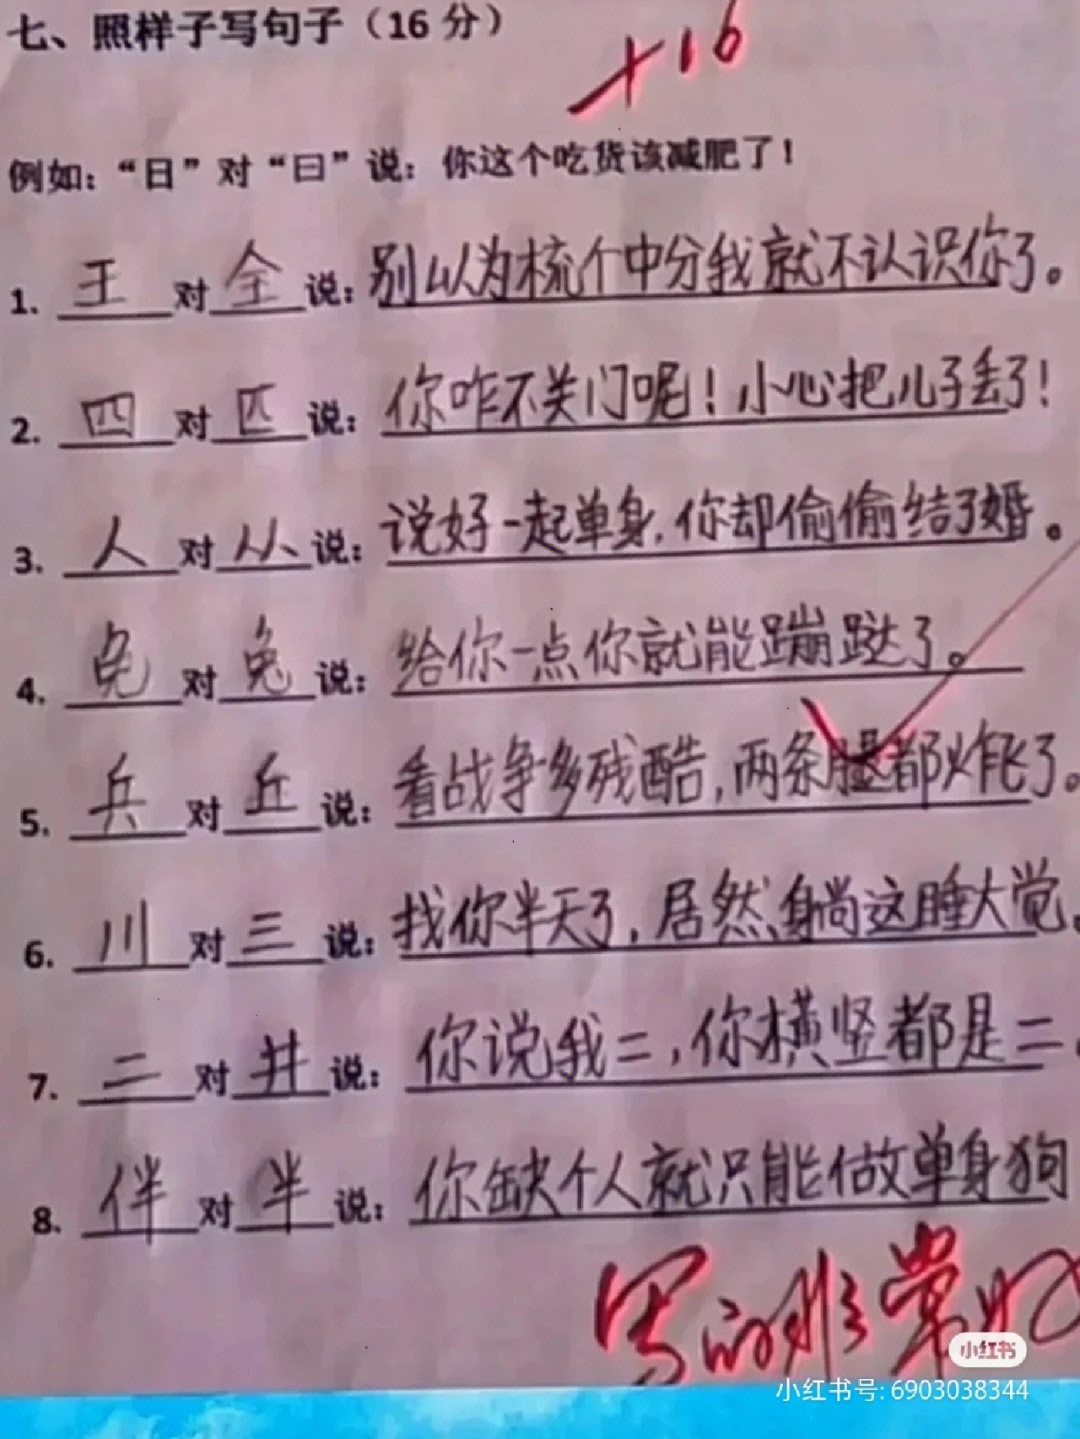 七、照样子写句子（16 分）
+16
例如：“日”对“曰”说：你这个吃货该减肥了！
1. 王 对 全 说：别以为梳个中分我就不认识你了。
2. 四 对 匹 说：你咋不关门呢！小心把儿子丢了！
3. 人 对 从 说：说好一起单身，你却偷偷结了婚。
4. 免 对 兔 说：给你一点你就能蹦跶了。
5. 兵 对 丘 说：看战争多残酷，两条腿都炸飞了。
6. 川 对 三 说：找你半天了，居然躺这睡大觉。
7. 二 对 井 说：你说我二，你横竖都是二。
8. 伴 对 半 说：你缺个人就只能做单身狗
写的非常好
小红书
小红书号: 6903038344